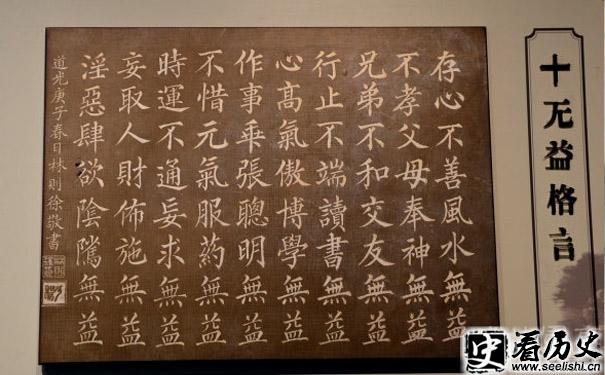 十无益格言
存心不善風水無益
不孝父母奉神無益
兄弟不和交友無益
行止不端讀書無益
心髙氣傲博學無益
作事乖張聰明無益
不惜元氣服葯無益
時運不通妄求無益
妄取人財佈施無益
淫惡肆欲陰騭無益
道光庚子春日林則徐敬書
史 看历史
www.seelishi.cn